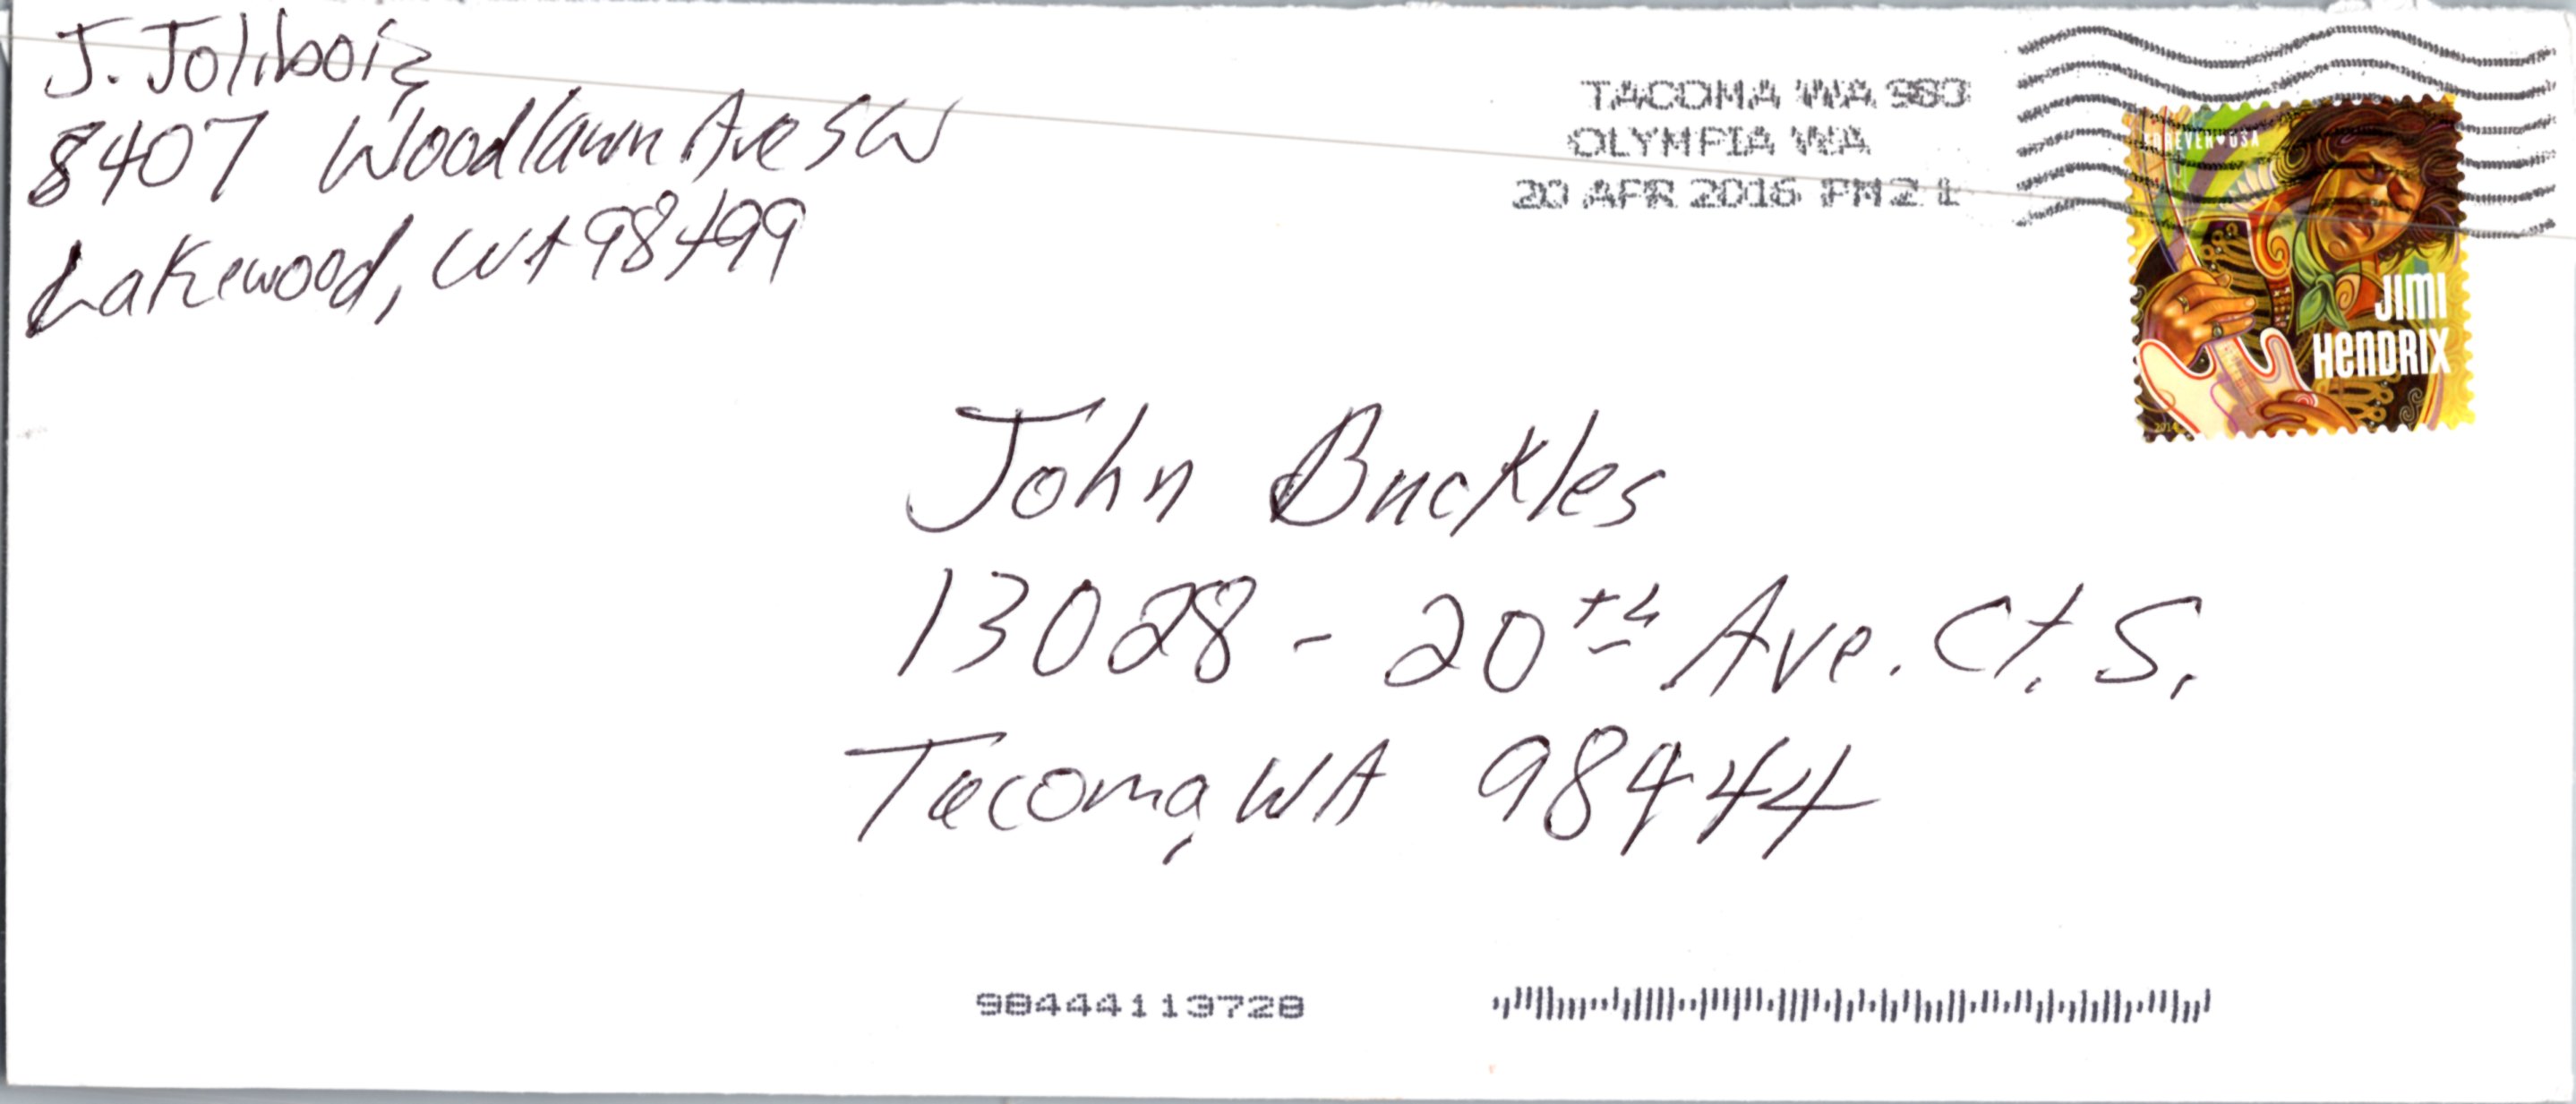 J. Jolibois
8407 Woodlawn Ave SW
Lakewood, WA 98499
TACOMA WA 983
OLYMPIA WA
20 APR 2016 PM 2 L
FOREVER USA
JIMI
HENDRIX
2014
John Buckles
13028 - 20th Ave. Ct. S.
Tacoma, WA 98444
98444113728